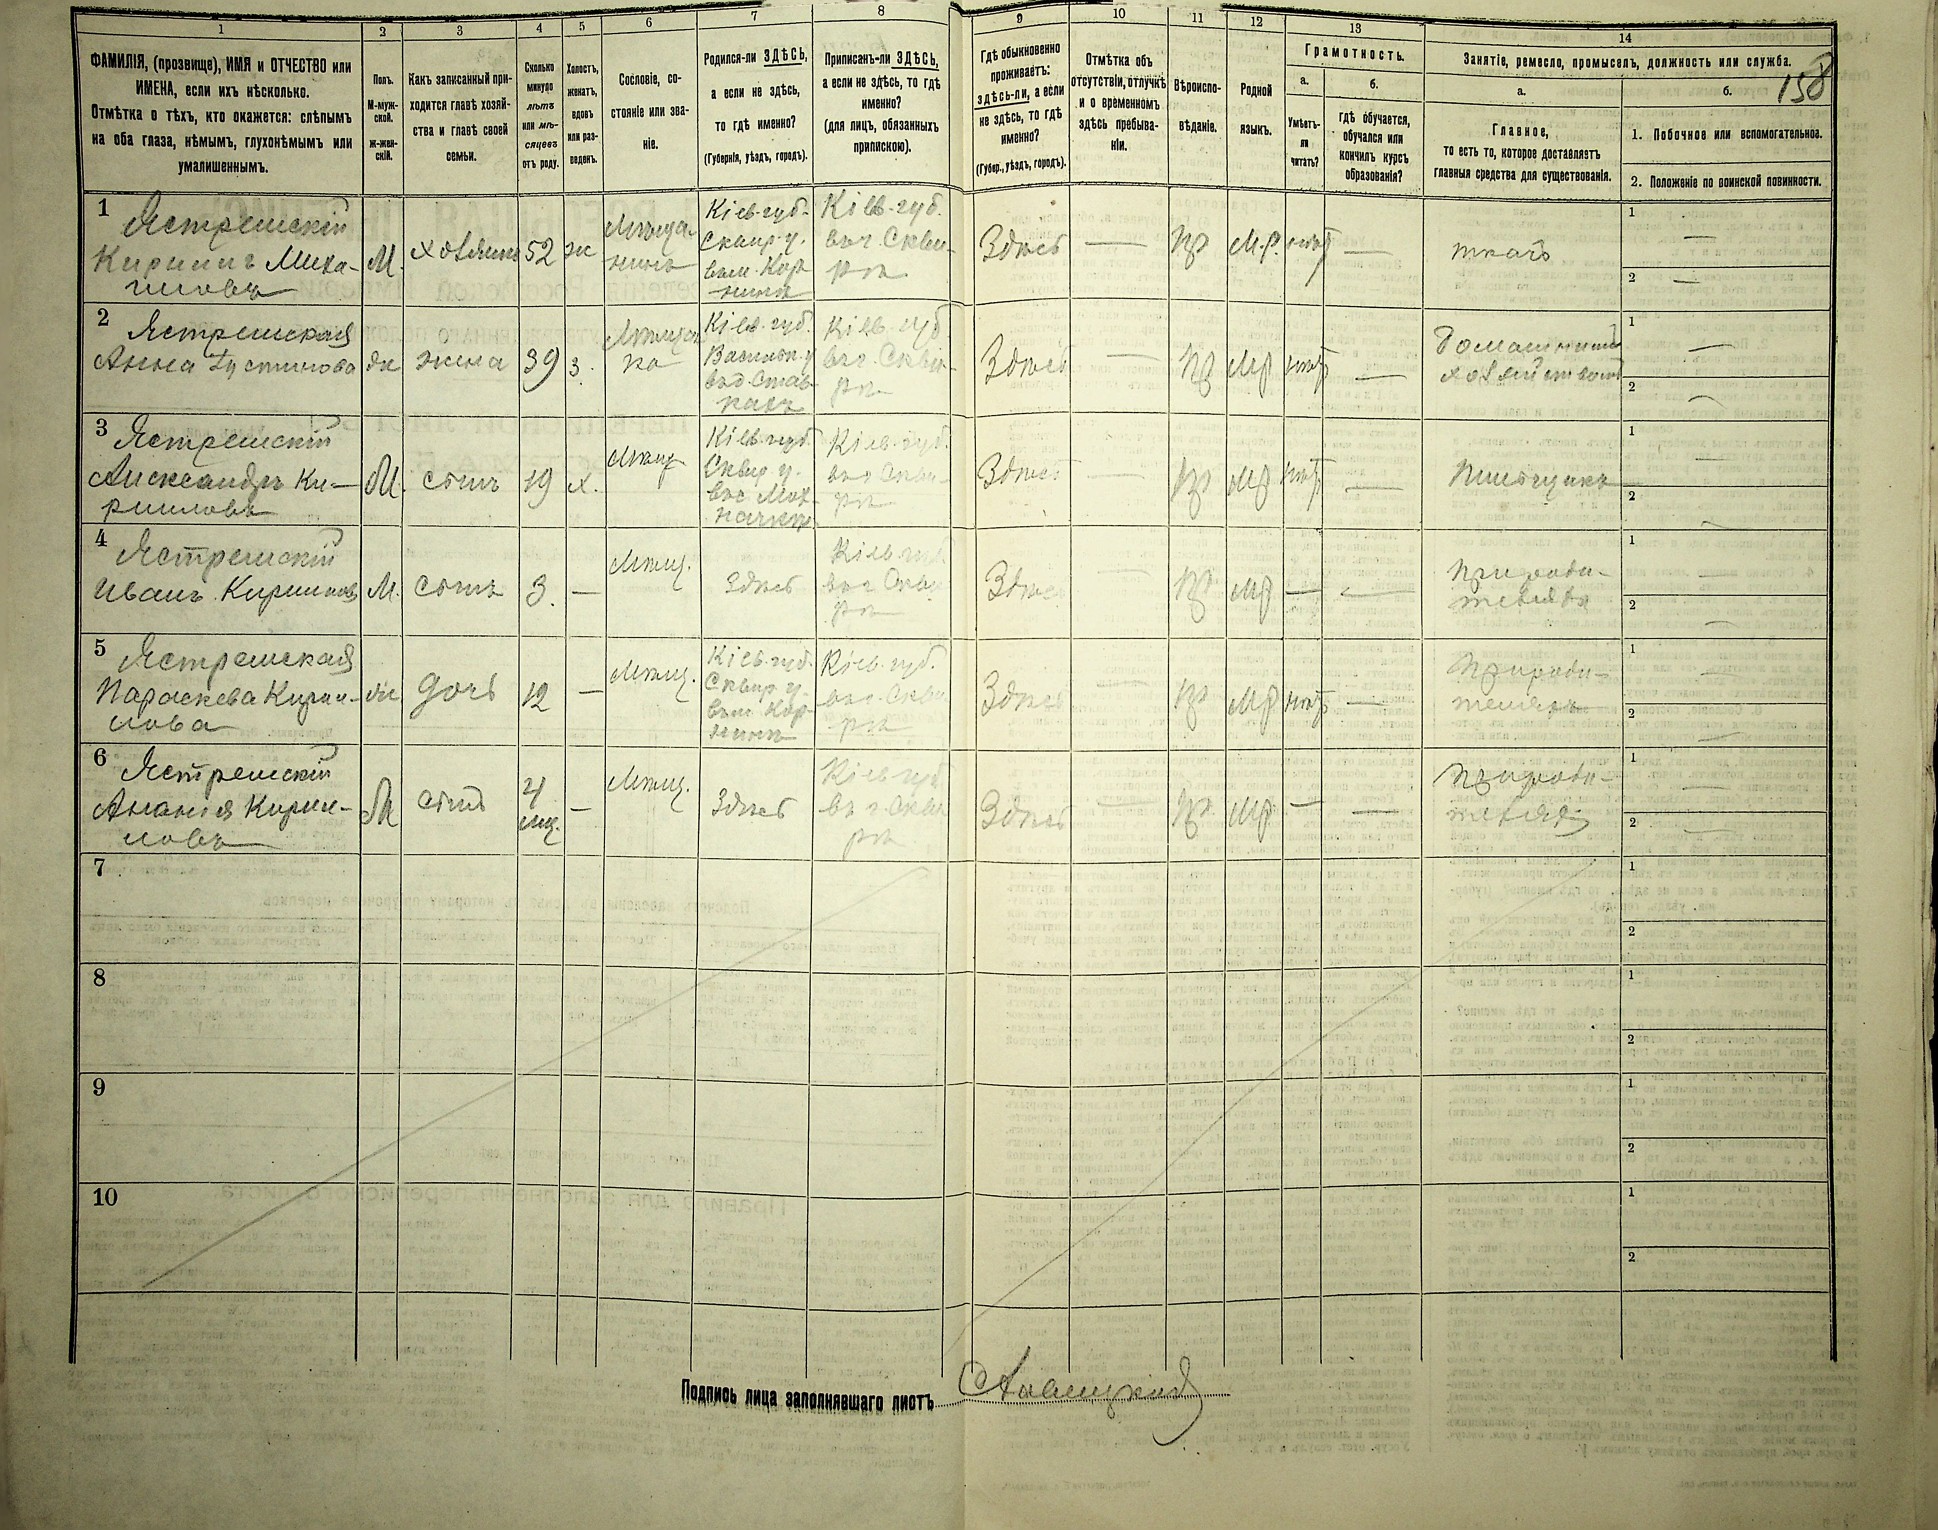 1 2 3 4 5 6 7 8 9 10 11 12 13 14
158
ФАМИЛІЯ, (прозвище), ИМЯ и ОТЧЕСТВО или
ИМЕНА, если ихъ нѣсколько.
Отмѣтка о тѣхъ, кто окажется: слѣпымъ
на оба глаза, нѣмымъ, глухонѣмымъ или
умалишеннымъ.
Полъ.
М-муж-
ской.
Ж-жен-
скій.
Какъ записанный при-
ходится главѣ хозяй-
ства и главѣ своей
семьи.
Сколько
минуло
лѣтъ
или мѣ-
сяцевъ
отъ роду.
Холостъ,
женатъ,
вдовъ
или раз-
веденъ.
Сословіе, со-
стояніе или зва-
ніе.
Родился-ли ЗДѢСЬ,
а если не здѣсь,
то гдѣ именно?
(Губернія, уѣздъ, городъ).
Приписанъ-ли ЗДѢСЬ,
а если не здѣсь, то гдѣ
именно?
(для лицъ, обязанныхъ
припискою).
Гдѣ обыкновенно
проживаетъ:
здѣсь-ли, а если
не здѣсь, то гдѣ
именно?
(Губер., уѣздъ, городъ).
Отмѣтка объ
отсутствіи, отлучкѣ
и о временномъ
здѣсь пребыва-
ніи.
Вѣроиспо-
вѣданіе.
Родной
языкъ.
Грамотность.
а.
Умѣетъ-
ли
читать?
б.
гдѣ обучается,
обучался или
кончилъ курсъ
образованія?
Занятіе, ремесло, промыселъ, должность или служба.
а.
Главное,
то есть то, которое доставляетъ
главныя средства для существованія.
б.
1. Побочное или вспомогательное.
2. Положеніе по воинской повинности.
1
Ястремскій
Кирилъ Миха-
иловъ
М.
хозяинъ
52
ж
Мѣща-
нинъ
Кіев. губ.
Сквир. у.
въ м. Кор
нинѣ
Кіев. губ.
въ г. Скви-
рѣ
Здѣсь
—
Пр
М.р.
нѣтъ
—
ткачъ
1 —
2 —
2
Ястремская
Анна Іустинова
ж
жена
39
з.
Мѣщан
ка
Кіев. губ.
Васильк. у
въ с. Став-
кахъ
Кіев. губ
въ г. Скви-
рѣ
Здѣсь
—
Пр
Мр
нѣтъ
—
1 —
2 —
3
Ястремскій
Александръ Ки-
рилловъ
М.
сынъ
19
х.
Мѣщ
Кіев. губ.
Сквир. у.
въ с. Мох-
начкѣ
Кіев. губ.
въ г. Скви-
рѣ
Здѣсь
—
Пр
Мр
нѣтъ
—
Пильщикъ
1
2
4
Ястремскій
Иванъ Кириловъ
М.
сынъ
3.
—
Мѣщ.
Здѣсь
Кіев. губ
въ г. Скви
рѣ
Здѣсь
—
Пр
Мр
—
—
При роди-
теляхъ
1 —
2 —
5
Ястремская
Параскева Кирил-
лова
ж
дочь
12
—
Мѣщ.
Кіев. губ.
Сквир. у.
въ м. Кор-
нинѣ
Кіев. губ.
въ г. Скви
рѣ
Здѣсь
—
Пр
Мр
нѣтъ
—
При роди-
теляхъ
1 —
2 —
6
Ястремскій
Ананія Кирил-
ловъ
М
сынъ
4
мѣс.
—
Мѣщ.
Здѣсь
Кіев. губ
въ г. Скви
рѣ
Здѣсь
—
Пр
Мр
—
—
При роди-
теляхъ
1 —
2 —
7
1
2
8
1
2
9
1
2
10
1
2
Подпись лица заполнявшаго листъ